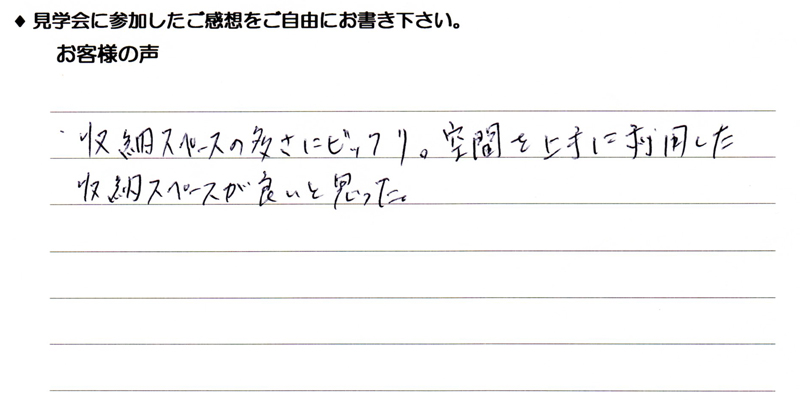 ◆ 見学会に参加したご感想をご自由にお書き下さい。
お客様の声
・収納スペースの多さにビックリ。空間を上手に利用した
収納スペースが良いと思った。